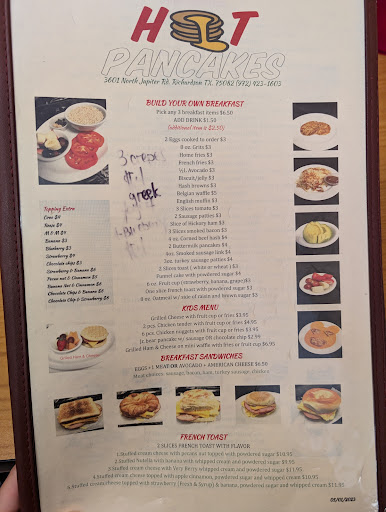 HOT
PANCAKES
3601 North Jupiter Rd. Richardson TX. 75082 (972) 423-1603
BUILD YOUR OWN BREAKFAST
Pick any 3 breakfast items $6.50
ADD DRINK $1.50
(additional item is $2.50)
2 Eggs cooked to order $3
8 oz. Grits $3
Home fries $3
French fries $3
½ Avocado $3
Biscuit/jelly $3
Hash browns $3
Belgian waffle $5
English muffin $3
3 Slices tomato $3
2 Sausage patties $3
Slice of Hickory ham $3
3 Slices smoked bacon $3
4 oz. Corned beef hash $4
2 Buttermilk pancakes $4
4oz. Smoked sausage link $4
3oz. turkey sausage patties $4
2 Slices toast ( white or wheat ) $3
Funnel cake with powdered sugar $4
6 oz. Fruit cup (strawberry, banana, grape) $3
One slice French toast with powdered sugar $3
8 oz. Oatmeal w/ side of raisin and brown sugar $3
Topping Extra
Oreo
M & M
Banana $3
Blueberry $3
Strawberry
Chocolate chip
Strawberry & Banana
Pecan nut & Cinnamon
Banana Nut & Cinnamon
Chocolate Chip & Banana
Chocolate Chip & Strawberry
3 crepes
greek
KIDS MENU
Grilled Cheese with fruit cup or fries $5.95
2 pcs. Chicken tender with fruit cup or fries
6 pcs. Chicken nuggets with fruit cup or fries $5.95
1c. bear pancake w/ sausage OR chocolate chip $2.99
Grilled Ham & Cheese on mini waffle with fries or fruit cup $6.95
Grilled Ham & Cheese
BREAKFAST SANDWICHES
EGGS + 1 MEAT OR AVOCADO + AMERICAN CHEESE $6.50
Meat choice: sausage, bacon, ham, turkey sausage, chicken
FRENCH TOAST
2 SLICES FRENCH TOAST WITH FLAVOR
1.Stuffed cream cheese with pecans nut topped with powdered sugar $10.95
2.Stuffed Nutella with banana with whipped cream and powdered sugar
3.Stuffed cream cheese with Very Berry whipped cream and powdered sugar
4.Stuffed cream cheese topped with apple cinnamon, powdered sugar and whipped cream $10.95
topped with strawberry (Fresh & Syrup) & banana, powdered sugar and whipped cream $11.95